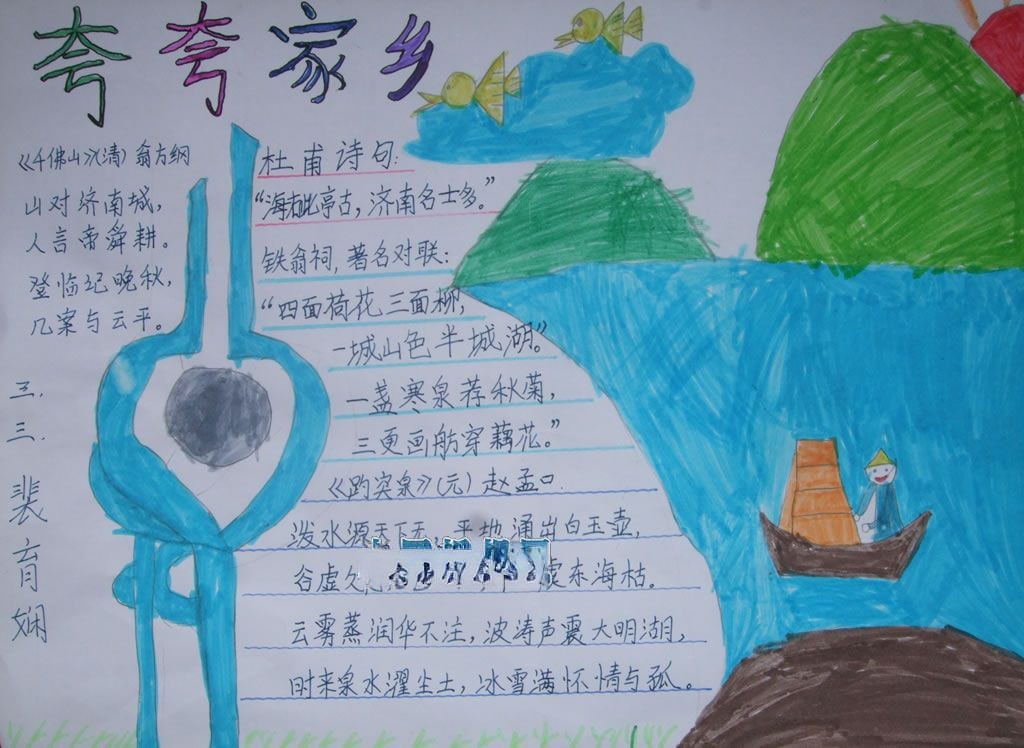 夸夸家乡
《千佛山》(清) 翁方纲
山对济南城，
人言帝舜耕。
登临纪晚秋，
几案与云平。
三.三.裴育娴
杜甫诗句:
“海右此亭古，济南名士多。”
铁翁祠，著名对联:
“四面荷花三面柳，
一城山色半城湖。”
一盏寒泉荐秋菊，
三更画舫穿藕花。”
《趵突泉》(元) 赵孟口.
泼水源天下无，平地涌出白玉壶，
谷虚久 东海枯。
云雾蒸润华不注，波涛声震大明湖，
时来泉水濯尘土，冰雪满怀情与孤。